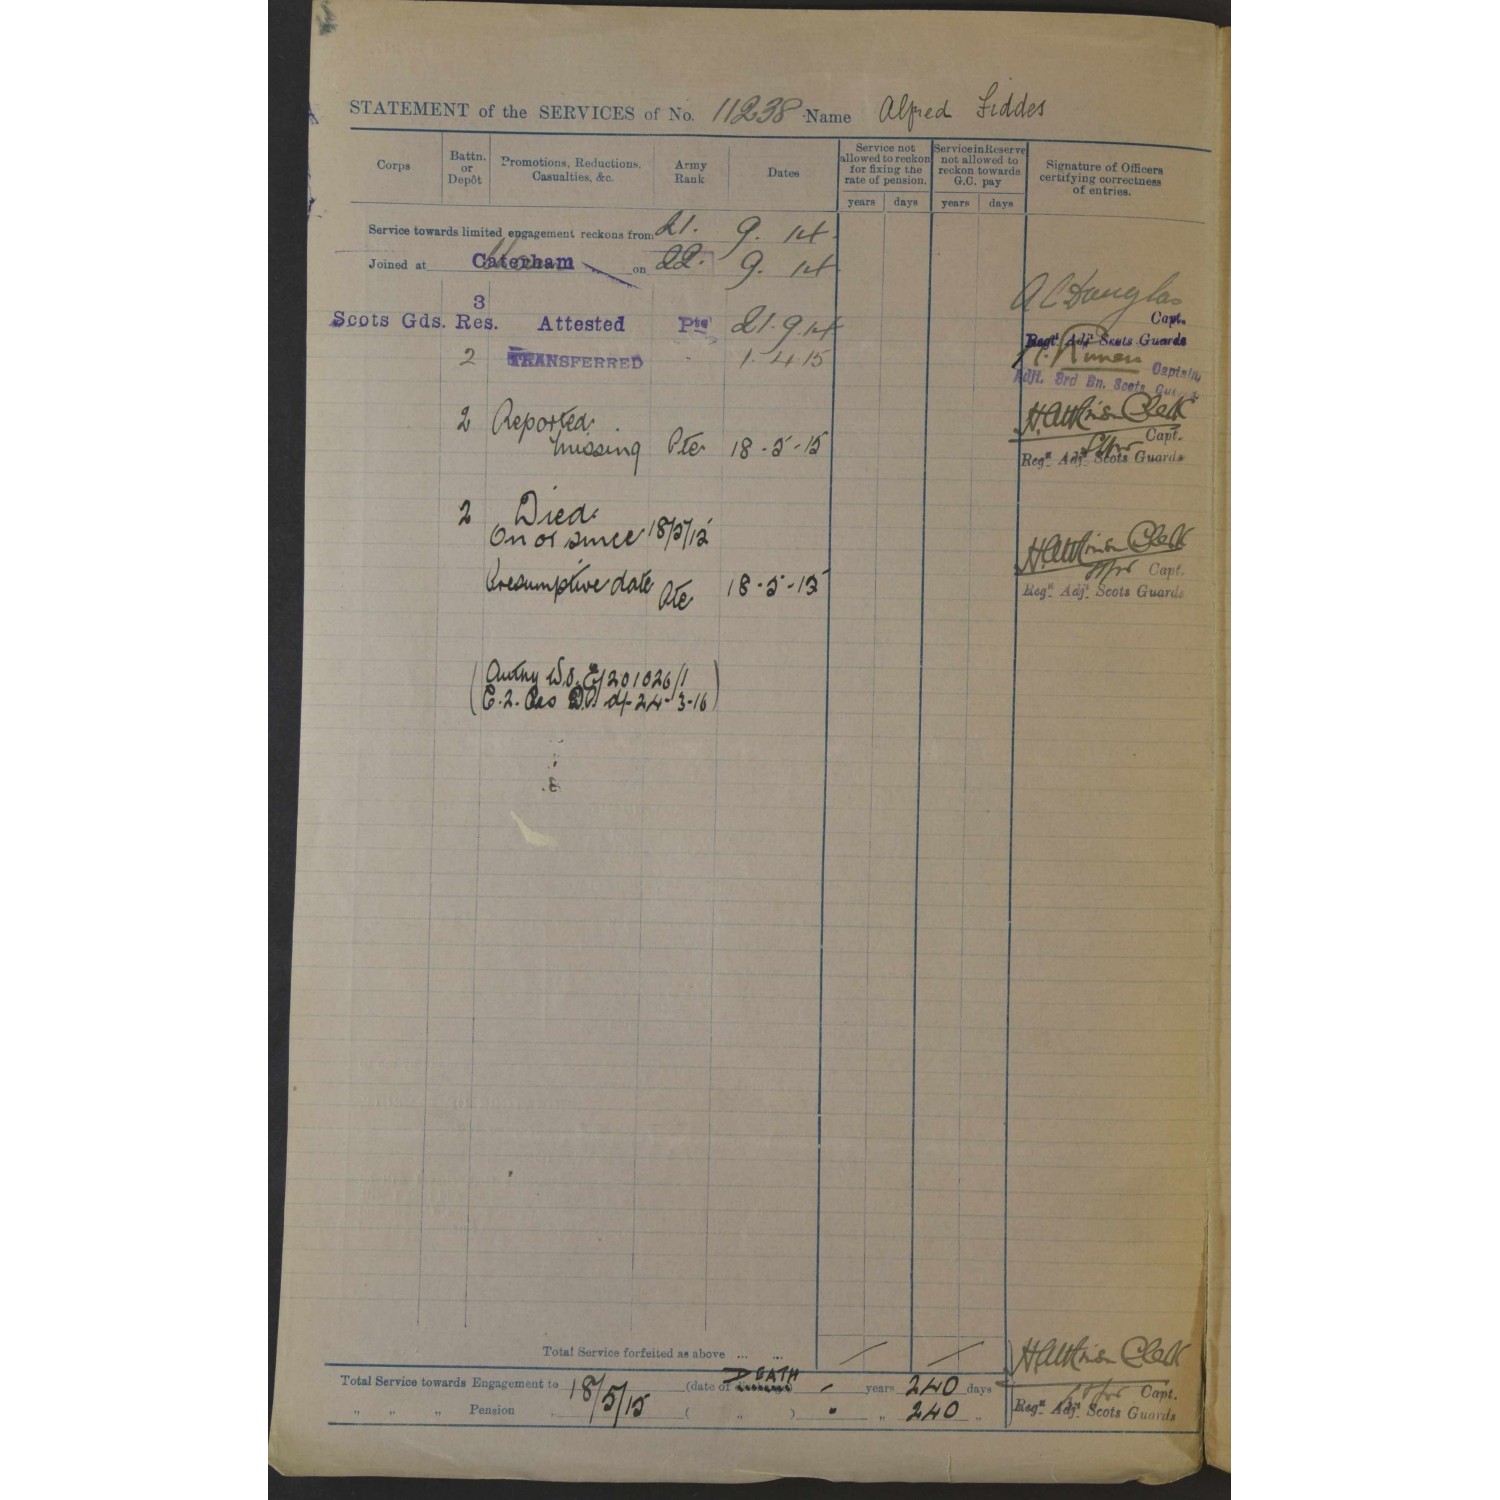 STATEMENT of the SERVICES of No. 11238 Name Alfred Fiddes
Corps
Battn. or Depôt
Promotions, Reductions, Casualties, &c.
Army Rank
Dates
Service not allowed to reckon for fixing the rate of pension.
Service in Reserve not allowed to reckon towards G.C. pay
Signature of Officers certifying correctness of entries.
years days years days
Service towards limited engagement reckons from 21. 9. 14
Joined at Caterham on 22. 9. 14
A C Douglas
Capt.
Regt. Adjt. Scots Guards
3
Scots Gds. Res. Attested Pte 21.9.14
2 TRANSFERRED 1. 4 15
Captain
Adjt. 3rd Bn. Scots Guards
2 Reported
missing Pte 18-5-15
H. Atkinson Clark
Capt.
Regtl. Adjt. Scots Guards
2 Died
On or since 18/5/15
Presumptive date Pte 18-5-15
H. Atkinson Clark
Capt.
Regtl. Adjt. Scots Guards
(Authy W.O. E/201026/1
C.2. Cas d/- 24-3-16)
Total Service forfeited as above ... ... / /
H. Atkinson Clark
Total Service towards Engagement to 18/5/15 (date of DEATH) - years 240 days
Capt.
" " " Pension " ( " ) " " 240 "
Regtl. Adjt. Scots Guards